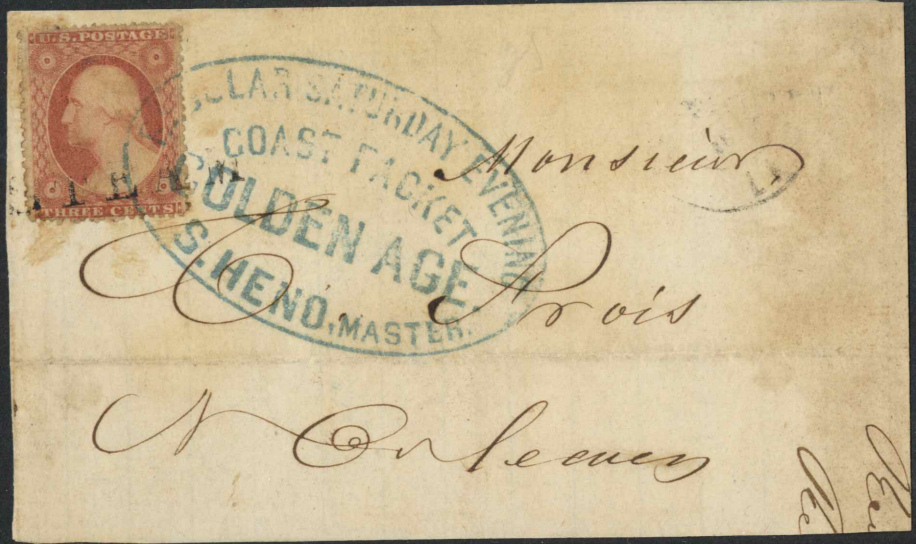 U.S. POSTAGE
THREE CENTS
STEAM
SATURDAY EVENING
COAST PACKET
GOLDEN AGE.
S. HENO, MASTER.
Monsieur
Trois
N Orleans
LA